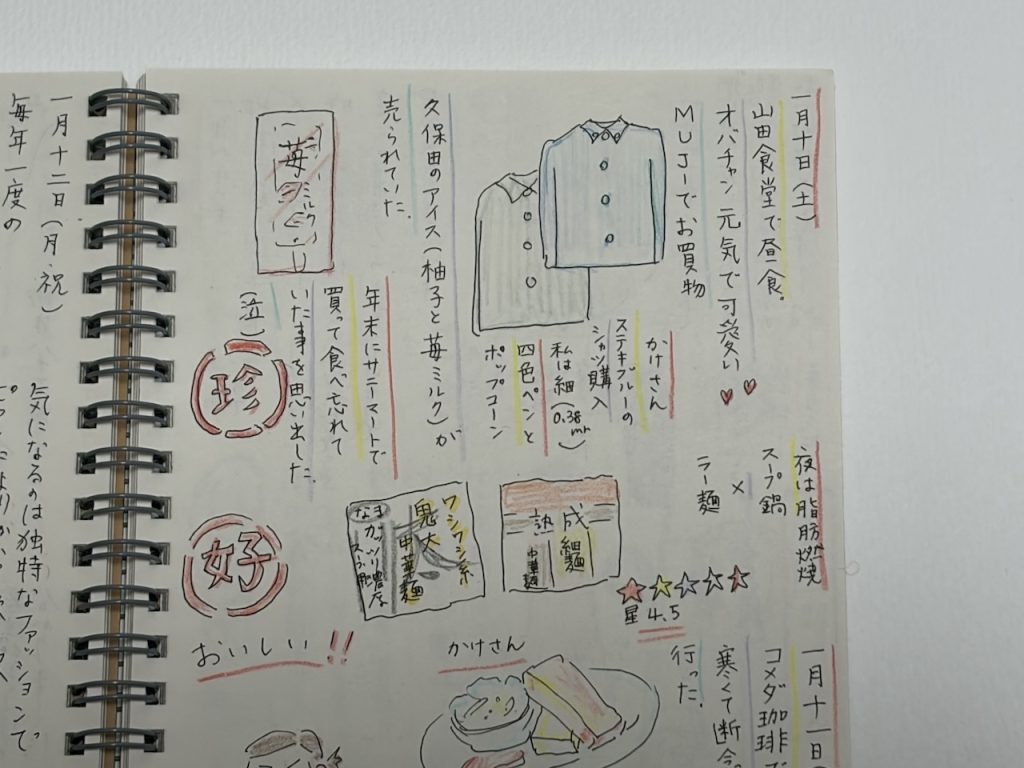 一月十日(土)
山田食堂で昼食。
オバチャン元気で可愛い
MUJIでお買物
かけさん
ステキブルーの
シャツ購入
私は細(0.38mm)
四色ペンと
ポップコーン
久保田のアイス(柚子と苺ミルク)が
売られていた。
苺
ミルク
年末にサニーマートで
買って食べ忘れて
いた事を思い出した。
(泣)
珍
夜は脂肪燃焼
スープ鍋
×
ラー麺
熟成
細麺
中華麺
星4.5
ワシワシ系
鬼太
中華麺
なま
好
おいしい!!
一月十一日(
コメダ珈琲で
寒くて断念。
行った。
かけさん
一月十二日(月、祝)
毎年一度の
気になるのは独特なファッションで